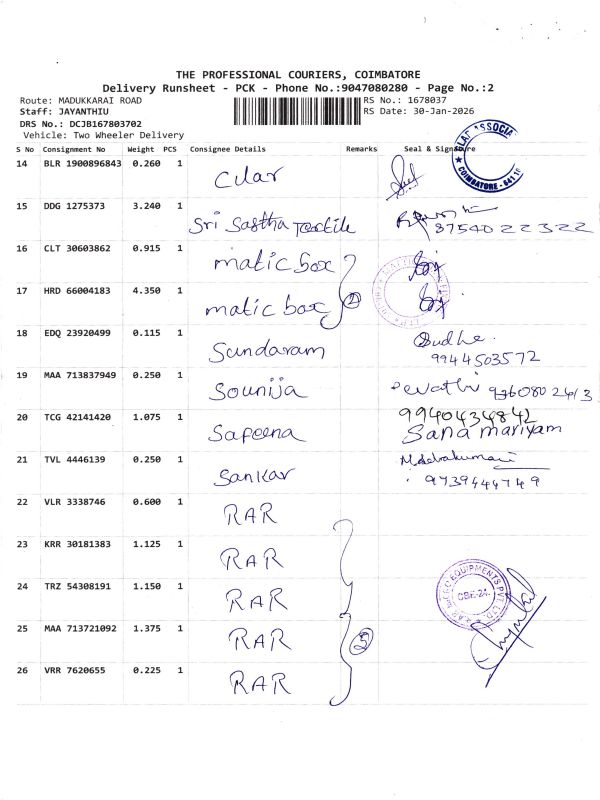 THE PROFESSIONAL COURIERS, COIMBATORE
Delivery Runsheet - PCK - Phone No.:9047080280 - Page No.:2
Route: MADUKKARAI ROAD RS No.: 1678037
Staff: JAYANTHIU RS Date: 30-Jan-2026
DRS No.: DCJB167803702
Vehicle: Two Wheeler Delivery
S No Consignment No Weight PCS Consignee Details Remarks Seal & Signature
14 BLR 1900896843 0.260 1
COIMBATORE - 641
15 DDG 1275373 3.240 1 Sri Sastha Textile
8754022322
16 CLT 30603862 0.915 1 matic box
17 HRD 66004183 4.350 1 matic box 2
18 EDQ 23920499 0.115 1 Sundaram Sudha
9944503572
19 MAA 713837949 0.250 1 Sounija Revathi
20 TCG 42141420 1.075 1 Safeena 9940434842
Sana mariyam
21 TVL 4446139 0.250 1 Sankar M.debakumari
9739444749
22 VLR 3338746 0.600 1 RAR
23 KRR 30181383 1.125 1 RAR
24 TRZ 54308191 1.150 1 RAR EQUIPMENTS PVT. LTD. CBE-24.
25 MAA 713721092 1.375 1 RAR 5
26 VRR 7620655 0.225 1 RAR